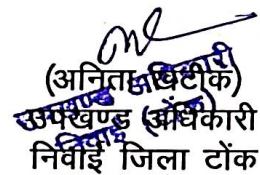 (अनिता खिटीक)
उपखण्ड अधिकारी
निवाई जिला टोंक
उपखण्ड अधिकारी
निवाई (टोंक)